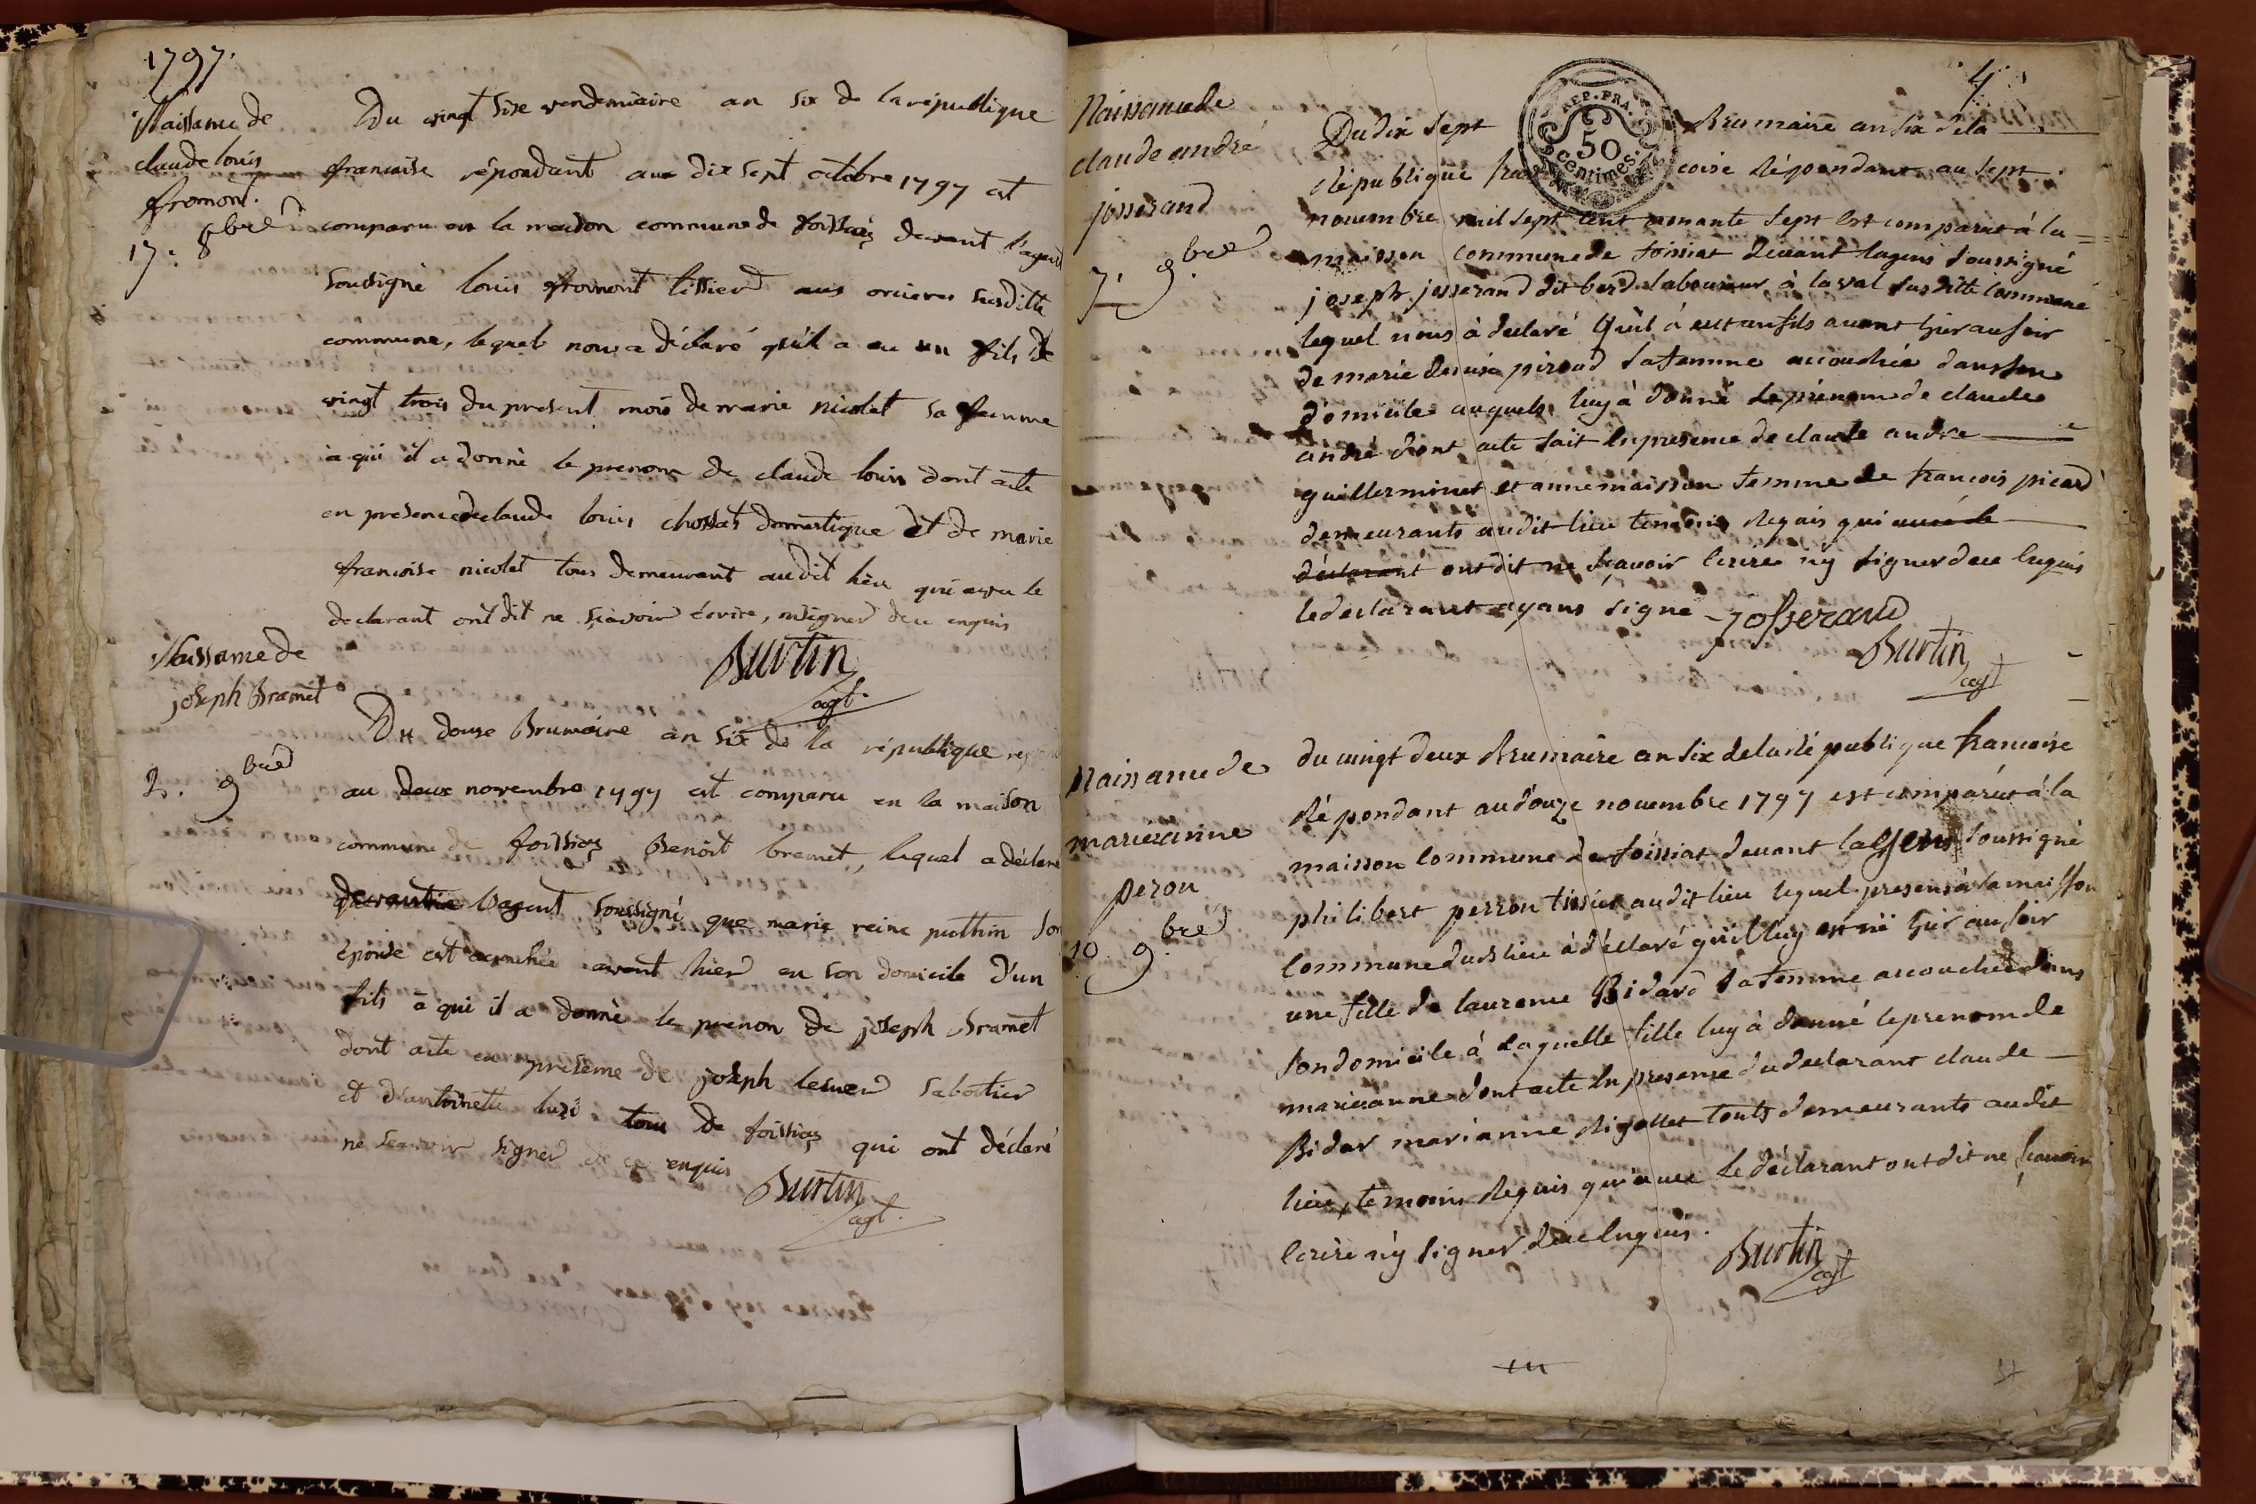 1797.
Naissance de
claude louis
fromont.
17. 8bre
Du vingt sixe vendemiaire an six de la république
francoise répondant aux dix sept octobre 1797 est
comparu en la maison commune de foissiaz devant l'agent
soussigné louis fromont tissier aus orcieres susditte
commune, lequel nous a déclaré qu'il a eu un fils de
vingt trois du present mois de marie nicolet sa femme
à qui il a donné le prenom de claude louis dont acte
en presence de claude louis chossat domestique et de marie
francoise nicolet tous demeurant audit lieu qui avec le
declarant ont dit ne sçavoir écrire, ni signer de ce enquis
Burtin
agt.
Naissance de
joseph Bramet
2. 9bre
Du douze Brumaire an six de la république
au deux novembre 1797 est comparu en la maison
commune de foissiaz Benoit bramet, lequel a déclaré
l'agent soussigné que marie reine puthin son
épouse est accouchée avant hier en son domicile d'un
fils à qui il a donné le prenon de joseph Bramet
dont acte en présence de joseph lesueur sabottier
et d'antoinette tous de foissiaz qui ont déclaré
ne sçavoir signer de ce enquis
Burtin
agt.
4
REP. FRA.
50
centimes.
Naissance de
claude andré
josserand
7. 9bre
Du dix sept Brumaire an six de la
république fran coise répondant au sept
novembre mil sept cent nonante sept est comparut à la
maisson commune de foissiat devant lagens soussigné
joseph josserand dit berd laboureur à laval susditte commune
lequel nous à declaré qu'il à eut un fils avant hier au soir
de marie piroud sa femme accouchée dans son
domicile auquels luy à donné le prénom de claude
andré dont acte fait en presence de claude andre
guillerminet et anne maisson femme de francois picard
demeurants audit lieu temoins requis qui avec le
déclarant ont dit ne sçavoir écrire n'y signer de ce enquis
le declarant ayans signé josserand
Burtin
agt
Naissance de
marie anne
peron
10. 9bre
du vingt deux Brumaire an six de la république francoise
répondant au douze novembre 1797 est comparut à la
maisson commune de foissiat devant lagens soussigné
philibert perron tissier audit lieu lequel presens à la maisson
commune dudt lieu à déclaré qu'il luy est né hier au soir
une fille de laurence Bidard sa femme accouchée dans
son domicile à laquelle fille luy à donné le prenom de
marieanne dont acte en presence du declarant claude
Bidar marianne rigollet touts demeurants audit
lieu, temoins requis qui avec le déclarant ont dit ne sçavoir
écrire n'y signer de ce enquis.
Burtin
agt